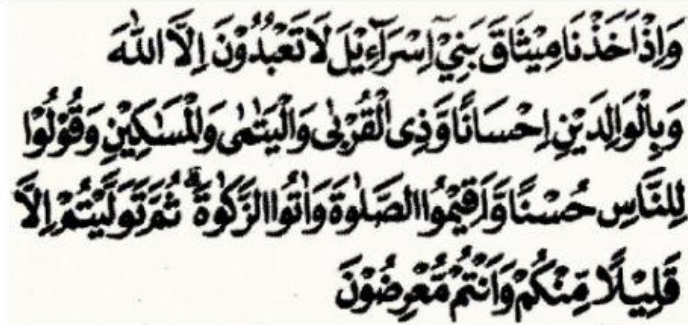 وَاِذْ اَخَذْنَا مِيْثَاقَ بَنِيْٓ اِسْرَآءِيْلَ لَا تَعْبُدُوْنَ اِلَّا اللّٰهَ
وَبِالْوَالِدَيْنِ اِحْسَانًا وَّذِى الْقُرْبٰى وَالْيَتٰمٰى وَالْمَسٰكِيْنِ وَقُوْلُوْا
لِلنَّاسِ حُسْنًا وَّاَقِيْمُوا الصَّلٰوةَ وَاٰتُوا الزَّكٰوةَ ۗ ثُمَّ تَوَلَّيْتُمْ اِلَّا
قَلِيْلًا مِّنْكُمْ وَاَنْتُمْ مُّعْرِضُوْنَ